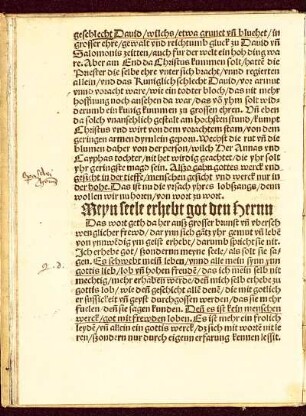 geschlecht Dauid/ wilchs/ etwa grunet vñ bluehet/ in
grosser ehre/ gewalt vnd reichtumb gluck zu Dauid vñ
Salomonis zeitten/ auch fur der welt ein hoh ding wa
re. Aber am End da Christus kummen solt/ hatte die
Priester die selbe ehre vnter sich bracht/ vnnd regierten
allein/ vnd das Kuniglich schlecht Dauid/ vor armut
vnnd voracht ware/ wie ein todter bloch/ das nit mehr
hoffnung noch ansehen da war/ das võ yhm solt wid
derumb ein kunig kummen zu grossen ehren. Vñ eben
da solch vnansehlich gestalt am hochsten stund/ kumpt
Christus vnd wirt von dem vorachtem stam/ von dem
geringen armen dynlein geporn. Wechst die rut vñ die
blumen daher von der person/ wilch Der Annas vnd
Cayphas tochter/ nit het wirdig geachtet/ die yhr solt
yhr geringste magd sein. Also gahn gottis werck vnd
gesicht in der tieffe/ menschen gesicht vnd werck nur in
der hohe. Das ist nu die vrsach yhres lobsangs/ denn
wollen wir nu horen/ von wort zu wort.
Meyn seele erhebt got den Herrnn
Das wort geth daher auß grosser bunst vñ vbersch
wenglicher frewd/ dar ynn sich gãtz yhr gemut vñ lebẽ
von ynnwedig ym geist erhebt/ darumb spricht sie nit.
Ich erhebe got/ sondernn meyne seele/ als solt sie sa-
gen. Es schwebt meiß leben/ vnnd alle mein synn ynn
gottis lieb/ lob vñ hohen freudẽ/ das ich mein selb nit
mechtig/ mehr erhaben wirde/ deñ mich selb erhebe zu
gottis lob/ wie deñ geschicht alle denẽ/ die mit gotlich
er sussickeit vñ geyst durchgossen werden/ das sie mehr
fuelen/ deñ sie sagen kunden. Deñ es ist kein menschen
werck/ got mit frewden loben. Es ist mehr ein frolich
leydẽ/ vñ allein ein gottis werck/ dz sich mit wortẽ nit le
ren/ ßondern nur durch eigen erfarung kennen lessit.